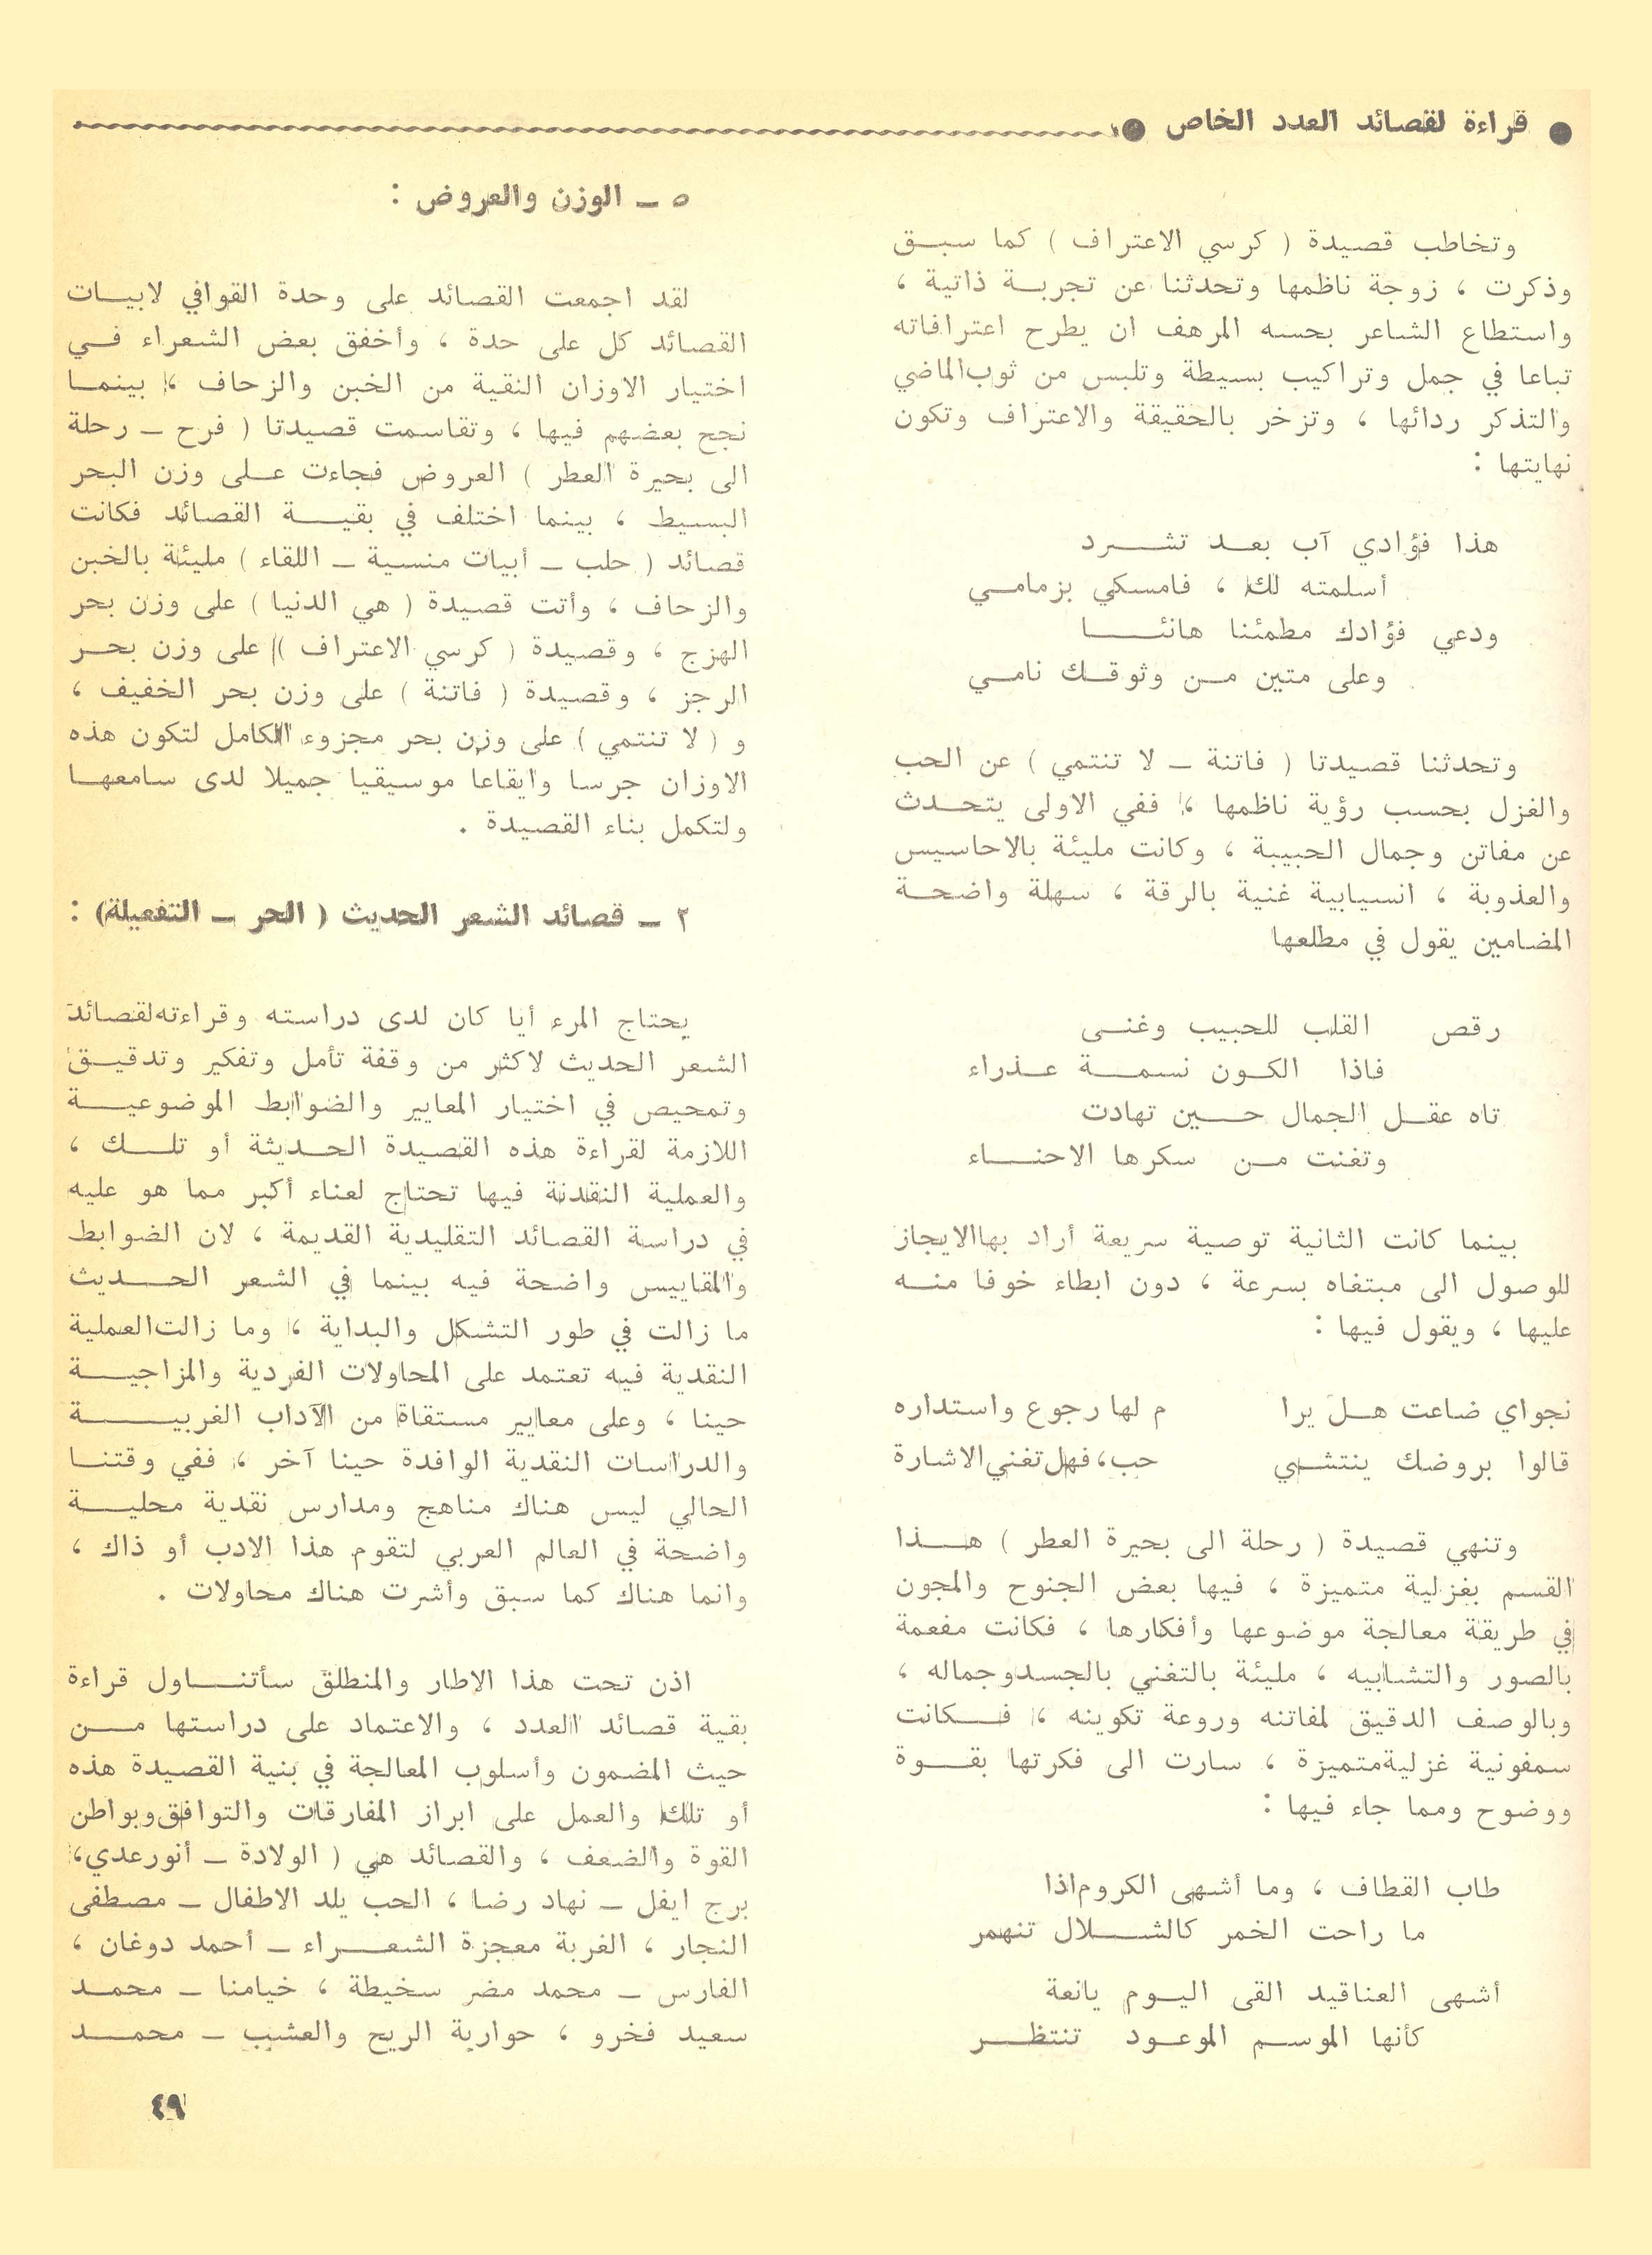 ● قراءة لقصائد العدد الخاص ●
وتخاطب قصيدة ( كرسي الاعتراف ) كما سبق
وذكرت ، زوجة ناظمها وتحدثنا عن تجربة ذاتية ،
واستطاع الشاعر بحسه المرهف ان يطرح اعترافاته
تباعا في جمل وتراكيب بسيطة وتلبس من ثوب الماضي
والتذكر ردائها ، وتزخر بالحقيقة والاعتراف وتكون
نهايتها :
هذا فؤادي آب بعد تشرد
أسلمته لك ، فامسكي بزمامي
ودعي فؤادك مطمئنا هانئا
وعلى متين من وثوقك نامي
وتحدثنا قصيدتا ( فاتنة – لا تنتمي ) عن الحب
والغزل بحسب رؤية ناظمها ، ففي الاولى يتحدث
عن مفاتن وجمال الحبيبة ، وكانت مليئة بالاحاسيس
والعذوبة ، انسيابية غنية بالرقة ، سهلة واضحة
المضامين يقول في مطلعها
رقص القلب للحبيب وغنى
فاذا الكون نسمة عذراء
تاه عقل الجمال حين تهادت
وتغنت من سكرها الاحناء
بينما كانت الثانية توصية سريعة أراد بها الايجاز
للوصول الى مبتغاه بسرعة ، دون ابطاء خوفا منه
عليها ، ويقول فيها :
نجواي ضاعت هل يرا م لها رجوع واستداره
قالوا بروضك ينتشي حب ، فهل تغني الاشارة
وتنهي قصيدة ( رحلة الى بحيرة العطر ) هذا
القسم بغزلية متميزة ، فيها بعض الجنوح والمجون
في طريقة معالجة موضوعها وأفكارها ، فكانت مفعمة
بالصور والتشابيه ، مليئة بالتغني بالجسد وجماله ،
وبالوصف الدقيق لمفاتنه وروعة تكوينه ، فكانت
سمفونية غزلية متميزة ، سارت الى فكرتها بقوة
ووضوح ومما جاء فيها :
طاب القطاف ، وما أشهى الكروم اذا
ما راحت الخمر كالشلال تنهمر
أشهى العناقيد القى اليوم يانعة
كأنها الموسم الموعود تنتظر
٥ – الوزن والعروض :
لقد اجمعت القصائد على وحدة القوافي لابيات
القصائد كل على حدة ، وأخفق بعض الشعراء في
اختيار الاوزان النقية من الخبن والزحاف ، بينما
نجح بعضهم فيها ، وتقاسمت قصيدتا ( فرح – رحلة
الى بحيرة العطر ) العروض فجاءت على وزن البحر
البسيط ، بينما اختلف في بقية القصائد فكانت
قصائد ( حلب – أبيات منسية – اللقاء ) مليئة بالخبن
والزحاف ، وأتت قصيدة ( هي الدنيا ) على وزن بحر
الهزج ، وقصيدة ( كرسي الاعتراف ) على وزن بحر
الرجز ، وقصيدة ( فاتنة ) على وزن بحر الخفيف ،
و ( لا تنتمي ) على وزن بحر مجزوء الكامل لتكون هذه
الاوزان جرسا وايقاعا موسيقيا جميلا لدى سامعها
ولتكمل بناء القصيدة .
٢ – قصائد الشعر الحديث ( الحر – التفعيلة) :
يحتاج المرء أيا كان لدى دراسته وقراءته لقصائد
الشعر الحديث لاكثر من وقفة تأمل وتفكير وتدقيق
وتمحيص في اختيار المعايير والضوابط الموضوعية
اللازمة لقراءة هذه القصيدة الحديثة أو تلك ،
والعملية النقدنة فيها تحتاج لعناء أكبر مما هو عليه
في دراسة القصائد التقليدية القديمة ، لان الضوابط
والمقاييس واضحة فيه بينما في الشعر الحديث
ما زالت في طور التشكل والبداية ، وما زالت العملية
النقدية فيه تعتمد على المحاولات الفردية والمزاجية
حينا ، وعلى معايير مستقاة من الآداب الغربية
والدراسات النقدية الوافدة حينا آخر ، ففي وقتنا
الحالي ليس هناك مناهج ومدارس نقدية محلية
واضحة في العالم العربي لتقوم هذا الادب أو ذاك ،
وانما هناك كما سبق وأشرت هناك محاولات .
اذن تحت هذا الاطار والمنطلق سأتناول قراءة
بقية قصائد العدد ، والاعتماد على دراستها من
حيث المضمون وأسلوب المعالجة في بنية القصيدة هذه
أو تلك والعمل على ابراز المفارقات والتوافق وبواطن
القوة والضعف ، والقصائد هي ( الولادة – أنور عدي ،
برج ايفل – نهاد رضا ، الحب يلد الاطفال – مصطفى
النجار ، الغربة معجزة الشعراء – أحمد دوغان ،
الفارس – محمد مضر سخيطة ، خيامنا – محمد
سعيد فخرو ، حوارية الريح والعشب – محمد
٤٩